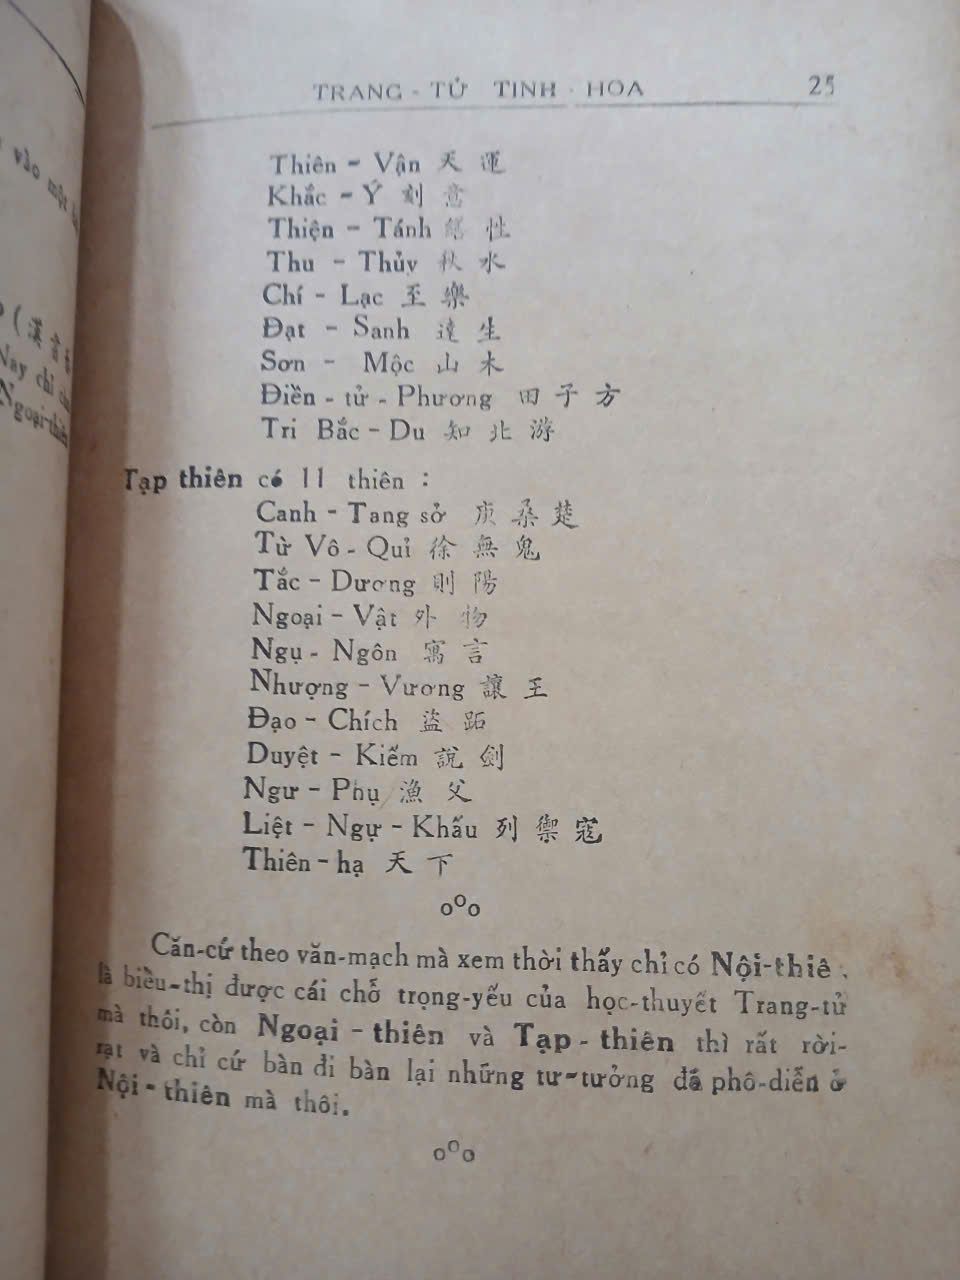 TRANG - TỬ TINH - HOA 25
Thiên - Vận 天 運
Khắc - Ý 刻 意
Thiện - Tánh 性
Thu - Thủy 秋 水
Chí - Lạc 至 樂
Đạt - Sanh 達 生
Sơn - Mộc 山 木
Điền - tử - Phương 田 子 方
Tri Bắc - Du 知 北 游
Tạp thiên có 11 thiên :
Canh - Tang sở 庚 桑 楚
Từ Vô - Quỉ 徐 無 鬼
Tắc - Dương 則 陽
Ngoại - Vật 外 物
Ngụ - Ngôn 寓 言
Nhượng - Vương 讓 王
Đạo - Chích 盜 跖
Duyệt - Kiếm 說 劍
Ngư - Phụ 漁 父
Liệt - Ngự - Khấu 列 禦 寇
Thiên - hạ 天 下
oOo
Căn-cứ theo văn-mạch mà xem thời thấy chỉ có Nội-thiê
là biểu-thị được cái chỗ trọng-yếu của học-thuyết Trang-tử
mà thôi, còn Ngoại - thiên và Tạp - thiên thì rất rời-
rạt và chỉ cứ bàn đi bàn lại những tư-tưởng đã phô-diễn ở
Nội - thiên mà thôi.
oOo
vào một
( 漢 言
Nay chỉ
Ngoại-thiên